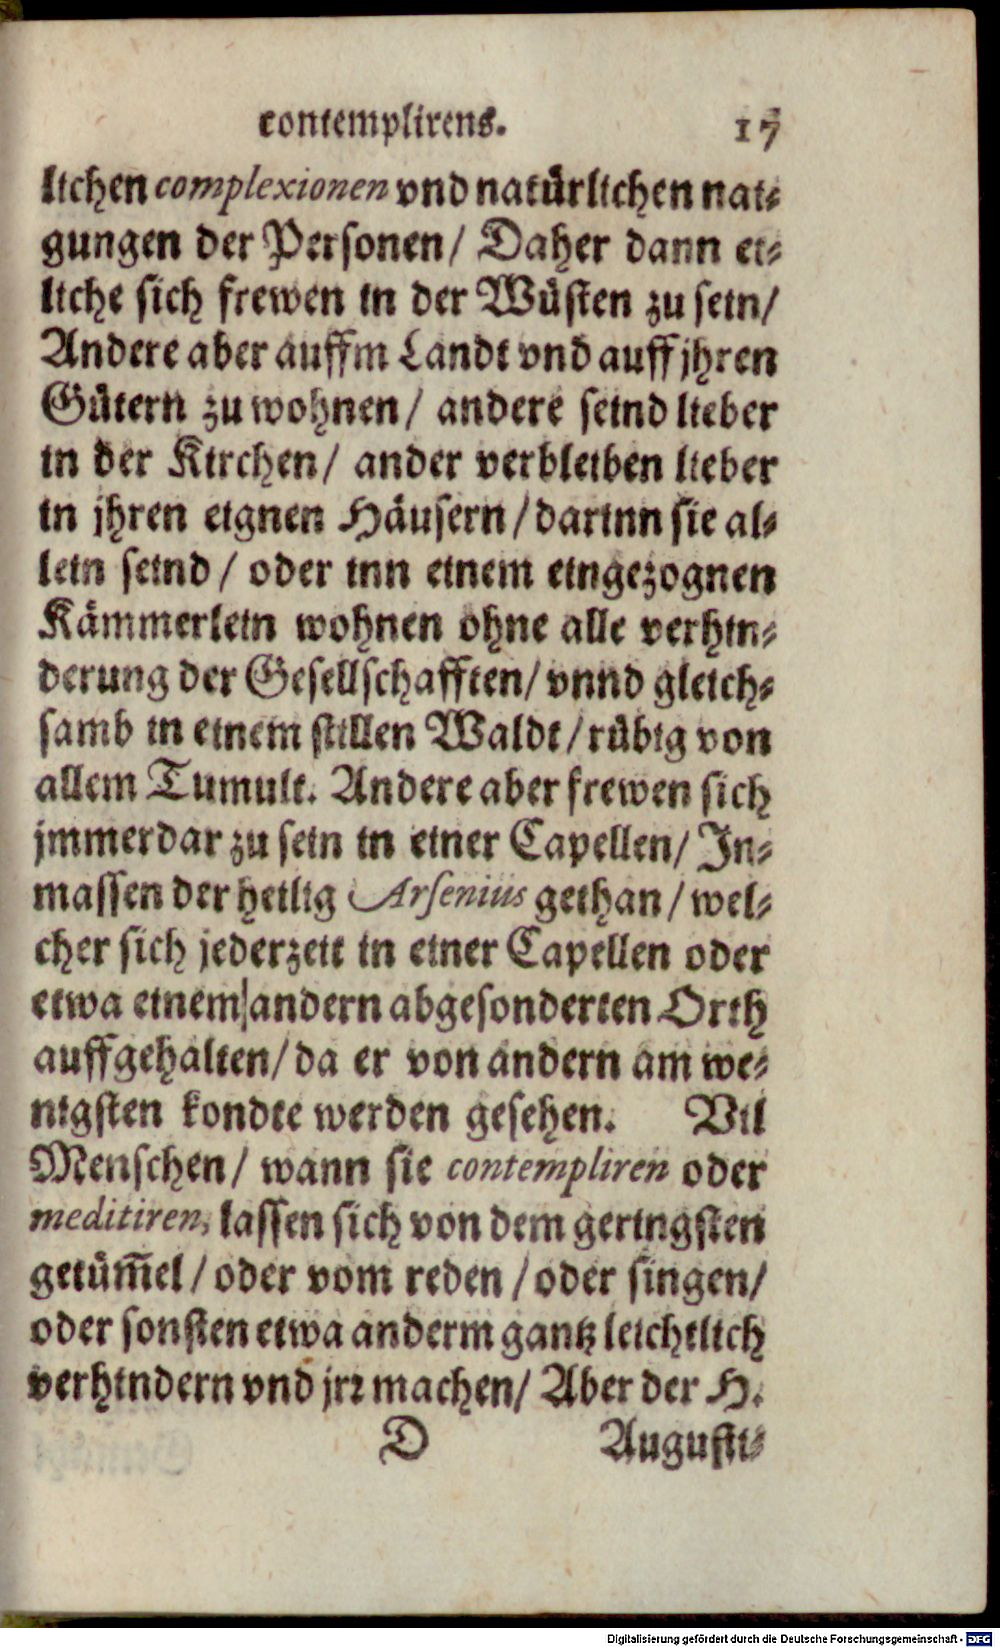 contemplirens. 17
lichen complexionen vnd natürlichen nai-
gungen der Personen/ Daher dann et-
liche sich frewen in der Wüsten zu sein/
Andere aber auffm Landt vnd auff jhren
Gütern zu wohnen/ andere seind lieber
in der Kirchen/ ander verbleiben lieber
in jhren eignen Häusern/ darinn sie al-
lein seind/ oder inn einem eingezognen
Kämmerlein wohnen ohne alle verhin-
derung der Gesellschafften/ vnnd gleich-
samb in einem stillen Waldt/ rübig von
allem Tumult. Andere aber frewen sich
jmmerdar zu sein in einer Capellen/ In-
massen der heilig Arsenius gethan/ wel-
cher sich jederzeit in einer Capellen oder
etwa einem andern abgesonderten Orth
auffgehalten/ da er von andern am we-
nigsten kondte werden gesehen. Vil
Menschen/ wann sie contempliren oder
meditiren, lassen sich von dem geringsten
getüm̃el/ oder vom reden/ oder singen/
oder sonsten etwa anderm gantz leichtlich
verhindern vnd jrꝛ machen/ Aber der H.
D Augusti-
Digitalisierung gefördert durch die Deutsche Forschungsgemeinschaft - DFG